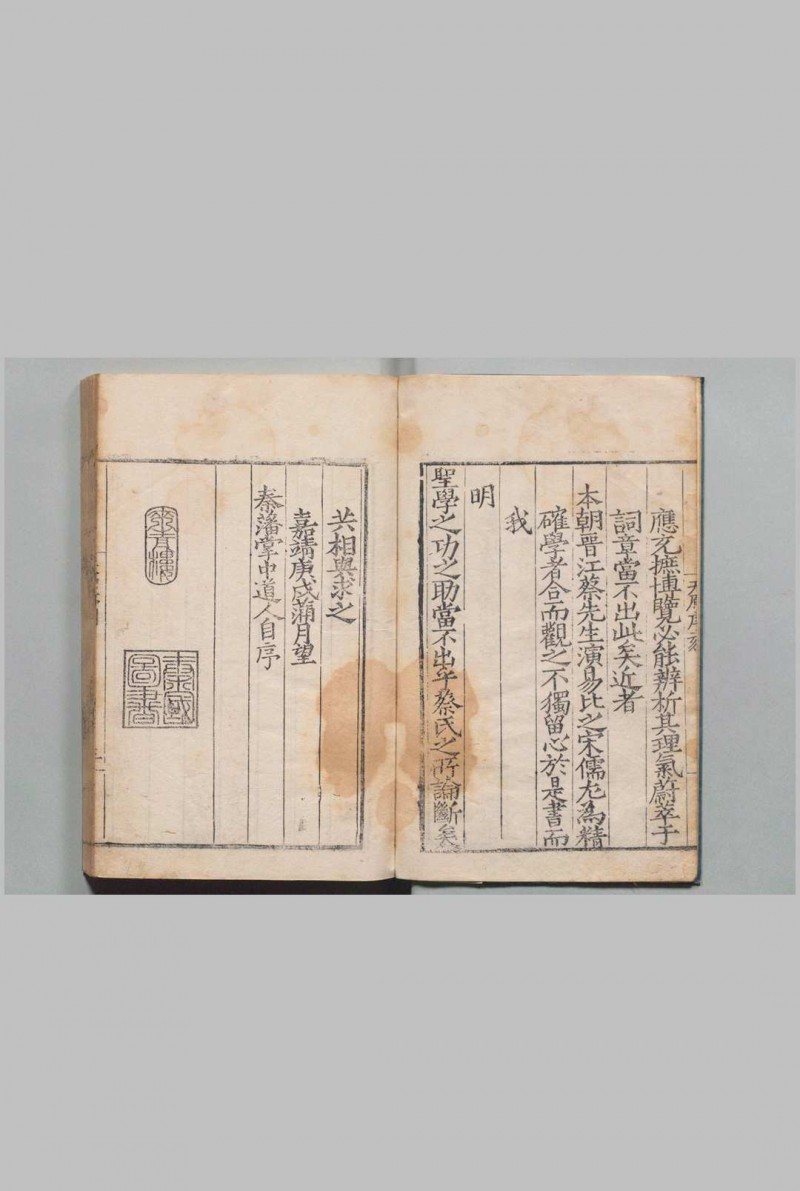 應充摭博覽必能辨析其理氣蔚萃于
詞章當不出此矣近者
本朝晋江蔡先生演易比之宋儒尤為精
確學者合而觀之不獨留心於是書而
我
明
聖學之功之助當不出乎蔡氏之所論斷矣
共相與求之
嘉靖庚戌蒲月望
秦藩掌中道人自序